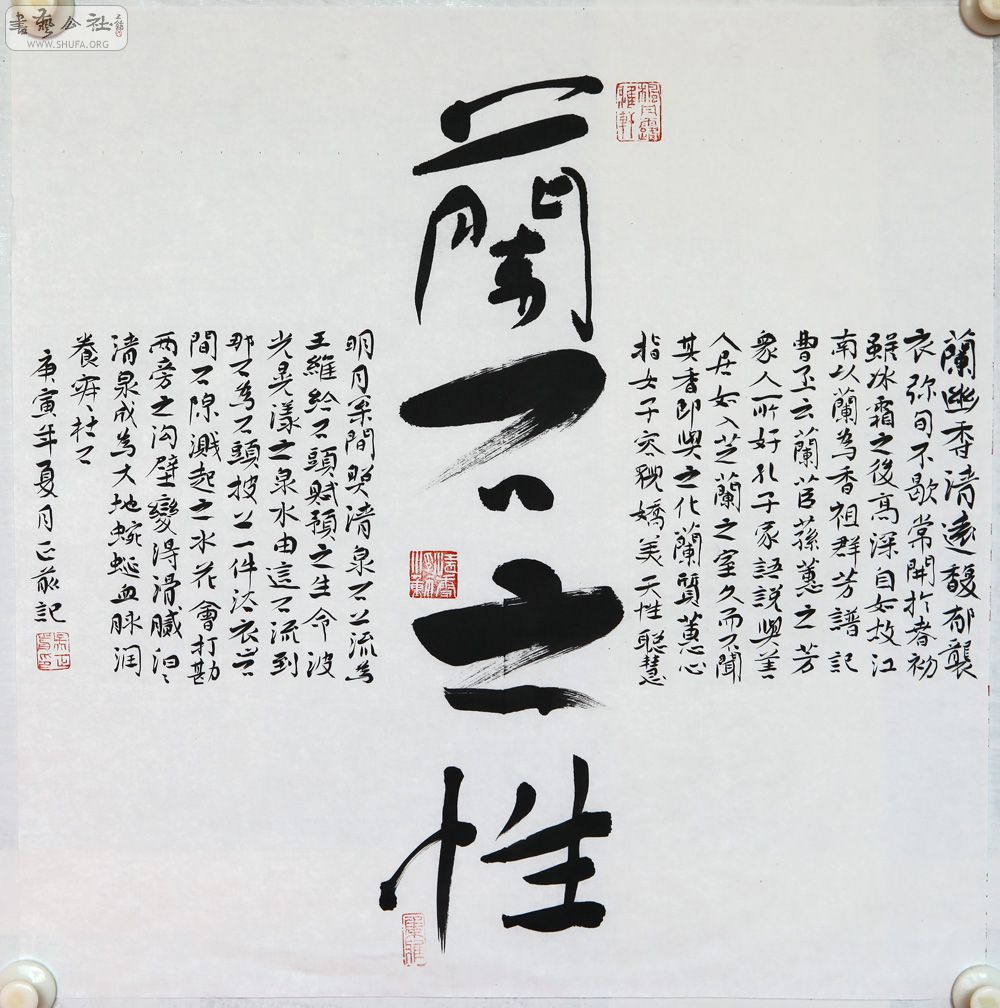 書藝公社
WWW.SHUFA.ORG
蘭石之性
蘭幽香清遠馥郁襲
衣弥旬不歇常開於春初
雖冰霜之後高深自如故江
南以蘭為香祖群芳譜記
曹丕云蘭茞蓀蕙之芳
衆人所好孔子家語説與善
人居如入芝蘭之室久而不聞
其香即與之化蘭質蕙心
指女子容貌嬌美天性聰慧
明月
間照清泉石上流為
王維給石頭賦預之生命波
光晃漾之泉水由這石流到
那石為石頭披上一件
衣
間石隙濺起之水花會打
兩旁之溝壁變得滑膩
清泉成為大地蜿蜒血脉潤
養
庚寅年夏月正
記